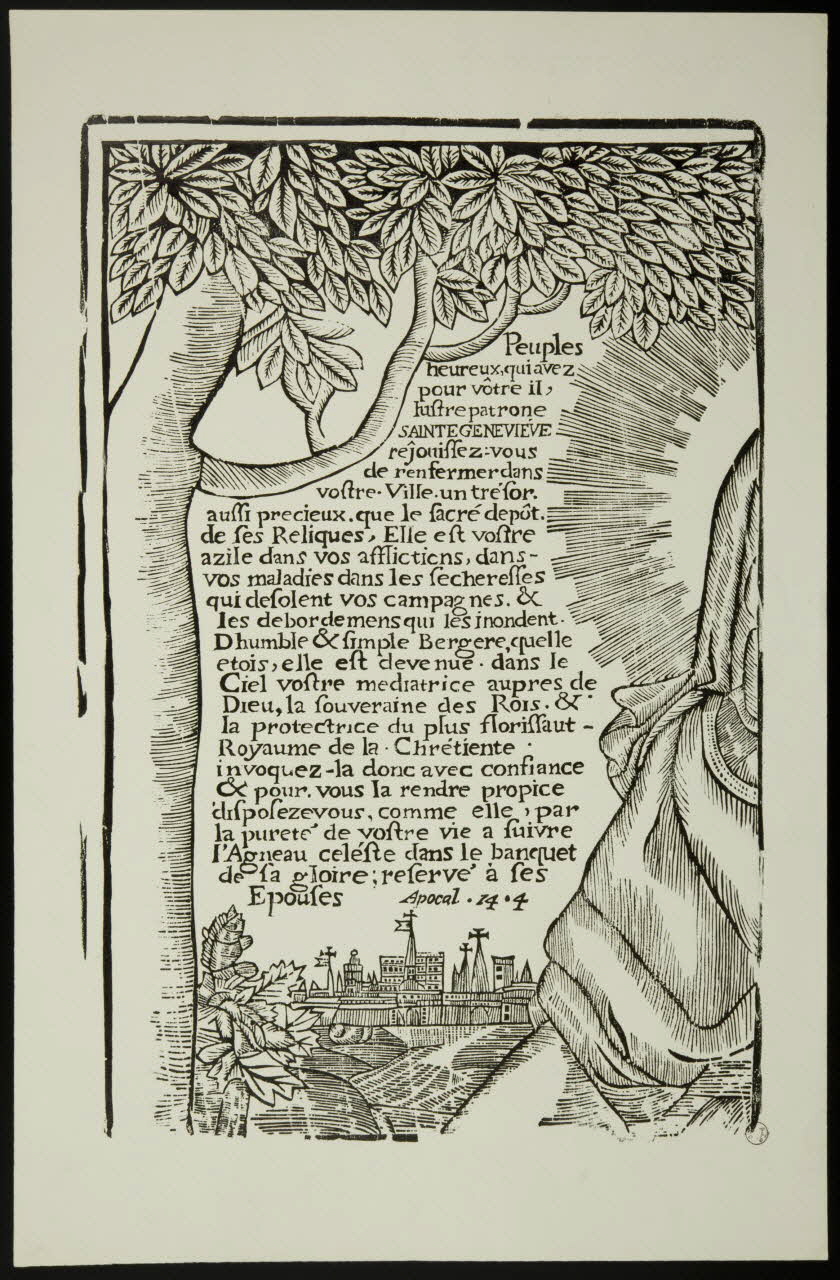 Peuples
heureux, qui avez
pour vôtre il,
luſtre patrone
SAINTE GENEVIEVE
rejoüiſſez-vous
de renfermer dans
voſtre. Ville. un tréſor.
auſſi precieux. que le ſacré depôt.
de ſes Reliques, Elle eſt voſtre
azile dans vos afflictions, dans-
vos maladies dans les ſechereſſes
qui deſolent vos campagnes. &
les debordemens qui les inondent.
Dhumble & ſimple Bergere, quelle
etois, elle eſt devenuë. dans le
Ciel voſtre mediatrice aupres de
Dieu, la ſouveraine des Rois. &
la protectrice du plus floriſſaut -
Royaume de la. Chrétiente.
invoquez-la donc avec confiance
& pour. vous la rendre propice
diſpoſezevous, comme elle, par
la pureté de voſtre vie a ſuivre
l'Agneau celéſte dans le banquet
de ſa gloire; reſervé à ſes
Epouſes Apocal. 14. 4